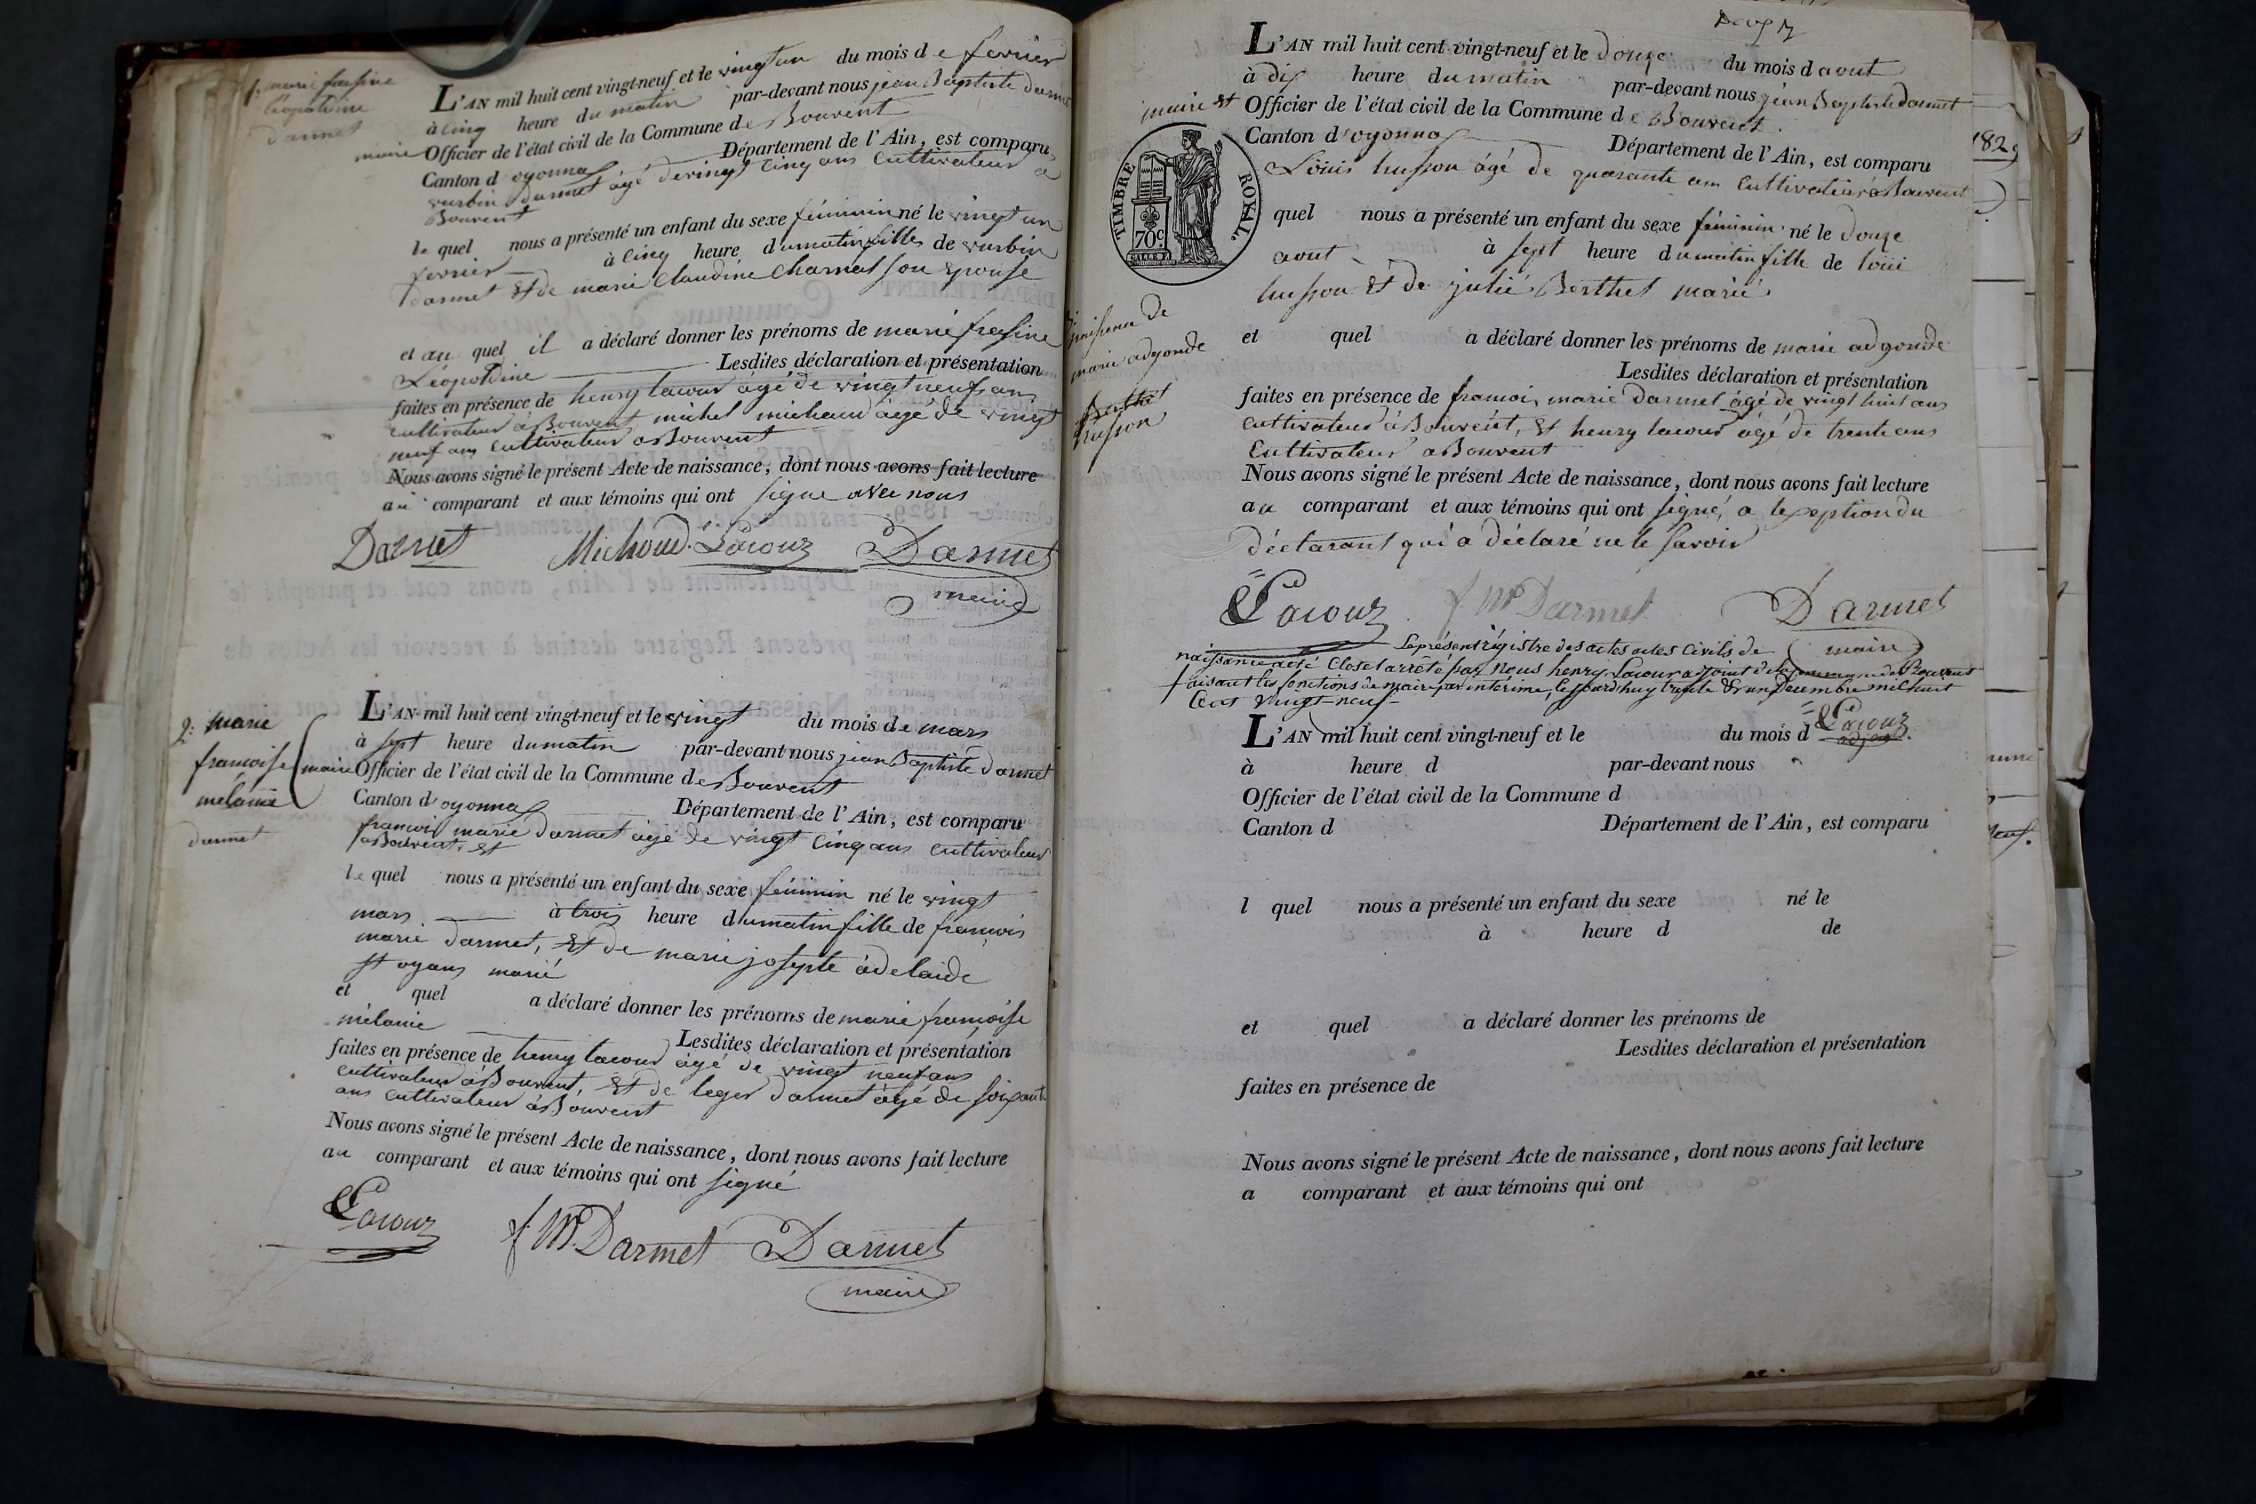 1. marie frasine
Léopoldine
darmet
L'AN mil huit cent vingt-neuf et le vingt un du mois de fevrier
à cinq heure du matin par-devant nous jean Baptiste darmet
maire Officier de l'état civil de la Commune de Bouvent
Canton d'oyonnax Département de l'Ain, est comparu
vurbin darmet âgé de vingt cinq ans cultivateur a
Bouvent
le quel nous a présenté un enfant du sexe féminin né le vingt un
fevrier à cinq heure du matin fille de vurbin
darmet et de marie Claudine Charnat son epouse
et au quel il a déclaré donner les prénoms de marie frasine
Léopoldine Lesdites déclaration et présentation
faites en présence de henry lacour âgé de vingt neuf ans
cultivateur à Bouvent michel michaud âgé de vingt
neuf ans cultivateur a Bouvent
Nous avons signé le présent Acte de naissance, dont nous avons fait lecture
au comparant et aux témoins qui ont signe avec nous
Darmet Michoud Lacour Darmet
maire
2. marie
francoise
mélanie
darmet
L'AN mil huit cent vingt-neuf et le vingt du mois de mars
à sept heure du matin par-devant nous jean Baptiste darmet
maire Officier de l'état civil de la Commune de Bouvent
Canton d'oyonnax Département de l'Ain, est comparu
francois marie darmet âgé de vingt cinq ans cultivateur
a Bouvent, et
le quel nous a présenté un enfant du sexe féminin né le vingt
mars à trois heure du matin fille de francois
marie darmet, et de marie josephte adelaide
st oyans marié
et quel a déclaré donner les prénoms de marie françoise
mélanie Lesdites déclaration et présentation
faites en présence de henry lacour âgé de vingt neuf ans
cultivateur à Bouvent, et de leger darmet âgé de soixante
ans cultivateur à Bouvent
Nous avons signé le présent Acte de naissance, dont nous avons fait lecture
au comparant et aux témoins qui ont signé
Lacour f M Darmet Darmet
maire
L'AN mil huit cent vingt-neuf et le douze du mois d aout
à dix heure du matin par-devant nous jean Baptiste darmet
maire et Officier de l'état civil de la Commune de Bouvent.
Canton d'oyonnax Département de l'Ain, est comparu
Louis husson âgé de quarante ans cultivateur a Bouvent
TIMBRE ROYAL
70c
quel nous a présenté un enfant du sexe féminin né le douze
aout à sept heure du matin fille de louis
husson et de julie Berthet marié
naissance de
marie adgonde
Berthet
husson
et quel a déclaré donner les prénoms de marie adgonde
Lesdites déclaration et présentation
faites en présence de francois marie darmet âgé de vingt huit ans
cultivateur à Bouvent, et henry lacour âgé de trente ans
Cultivateur a Bouvent
Nous avons signé le présent Acte de naissance, dont nous avons fait lecture
au comparant et aux témoins qui ont signé, a lexeption du
déclarant qui a déclaré ne le savoir
Lacour f M Darmet Darmet
maire
Le présent régistre des actes actes civils de
naissance a eté Clos et arrêté par Nous henry Lacour adjoint de la Commune de Bouvent
faisant les fonctions de maire par interime, le jourd'huy trente & un Decembre mil huit
Cent vingt-neuf
Lacour
adjoint
L'AN mil huit cent vingt-neuf et le du mois d
à heure d par-devant nous
Officier de l'état civil de la Commune d
Canton d Département de l'Ain, est comparu
l quel nous a présenté un enfant du sexe né le
à heure d de
et quel a déclaré donner les prénoms de
Lesdites déclaration et présentation
faites en présence de
Nous avons signé le présent Acte de naissance, dont nous avons fait lecture
a comparant et aux témoins qui ont
1829